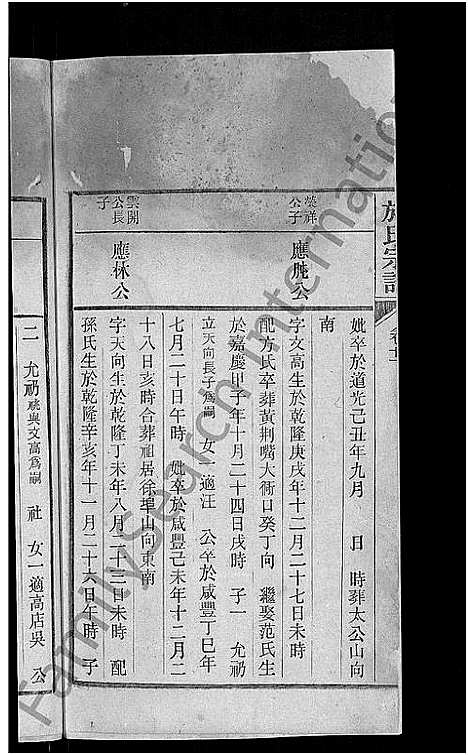 施氏宗譜
卷十二
妣卒於道光己丑年九月 日 時葬太公山向
南
榮祥
公子
應 公
字文高生於乾隆庚戌年十二月二十七日未時
配方氏卒葬黃荊嘴大衕口癸丁向 繼娶范氏生
於嘉慶甲子年十月二十四日戌時 子一 允礽
立天向長子爲嗣 女一適汪 公卒於咸豐丁巳年
七月二十日午時 妣卒於咸豐己未年十二月二
十八日亥時合葬祖居徐埠山向東南
雲開
公長
子
應林公
字天向生於乾隆丁未年八月二十三日未時 配
孫氏生於乾隆辛亥年十一月二十六日午時 子
二 允礽祧與文高爲嗣 社 女一適高店吳 公
FamilySearch International